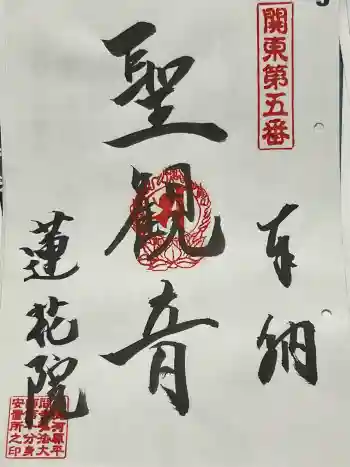 関東第五番
奉納
聖観音
蓮花院
安置所之印